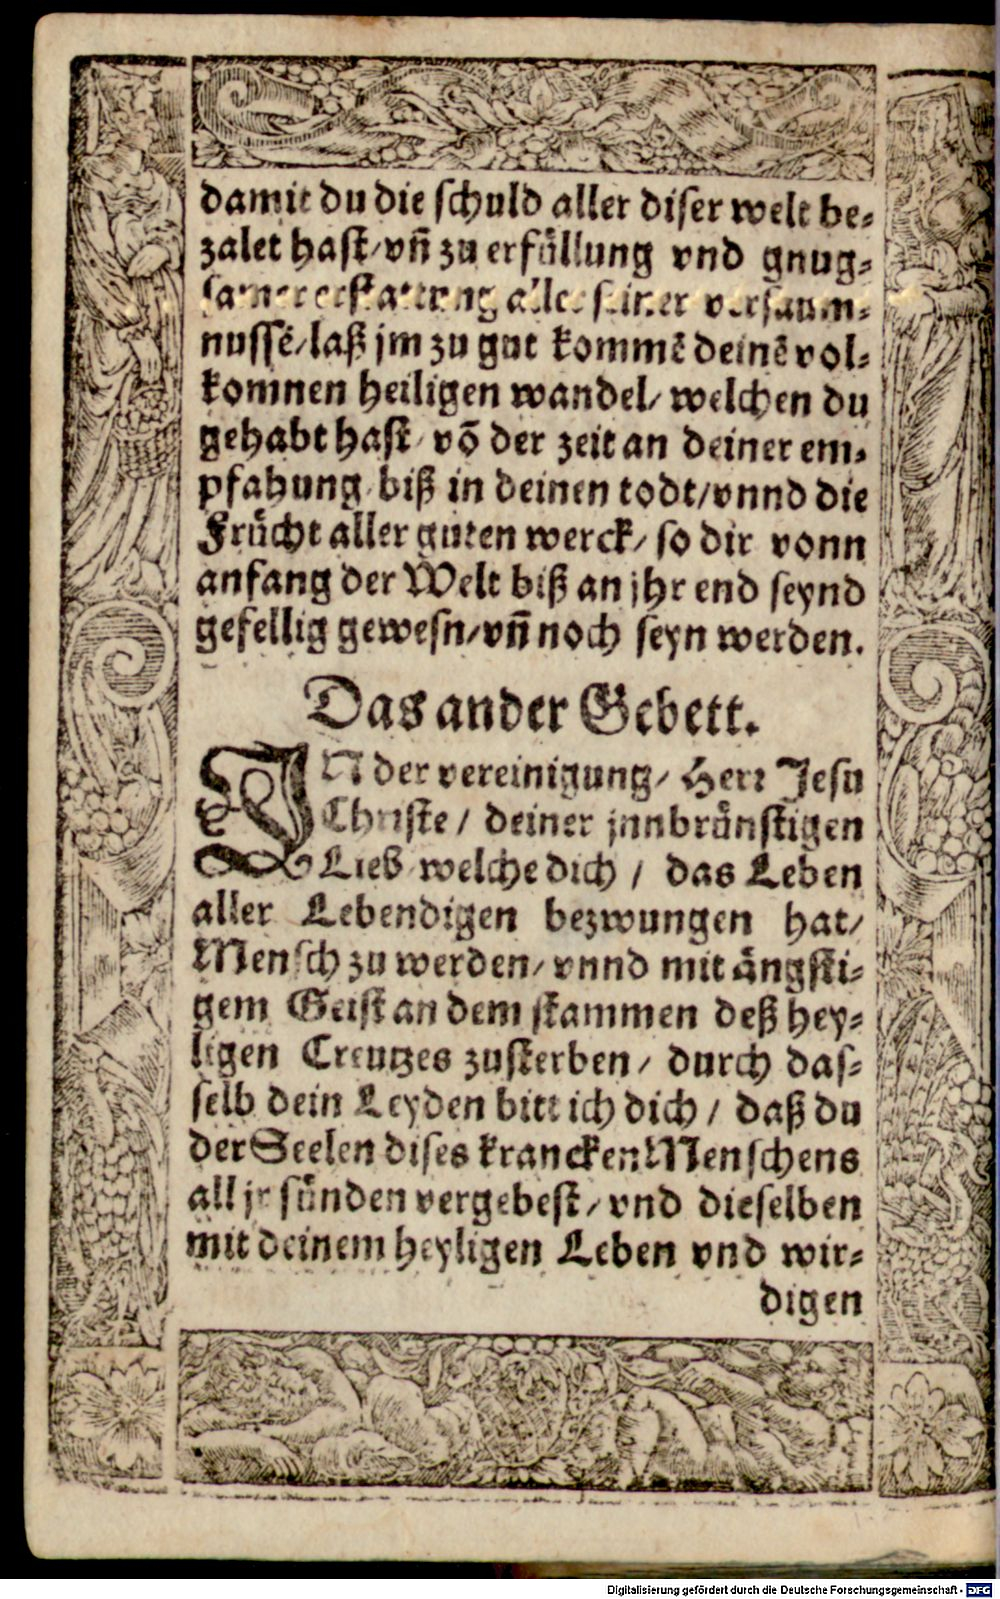 damit du die schuld aller diser welt be⸗
zalet hast/ vñ zu erfüllung vnd gnug⸗
samer erstattung aller seiner versaum⸗
nussē/ laß jm zu gut kommē deinē vol⸗
komnen heiligen wandel/ welchen du
gehabt hast/ vō der zeit an deiner em⸗
pfahung biß in deinen todt/ vnnd die
Frücht aller guten werck/ so dir vonn
anfang der Welt biß an jhr end seynd
gefellig gewesn/ vñ noch seyn werden.
Das ander Gebett.
IN der vereinigung/ Herr Jesu
Christe/ deiner jnnbrünstigen
Lieb welche dich/ das Leben
aller Lebendigen bezwungen hat/
Mensch zu werden/ vnnd mit ängsti⸗
gem Geist an dem stammen deß hey⸗
ligen Creutzes zusterben/ durch das⸗
selb dein Leyden bitt ich dich/ daß du
der Seelen dises krancken Menschens
all jr sünden vergebest/ vnd dieselben
mit deinem heyligen Leben vnd wir⸗
digen
Digitalisierung gefördert durch die Deutsche Forschungsgemeinschaft - DFG